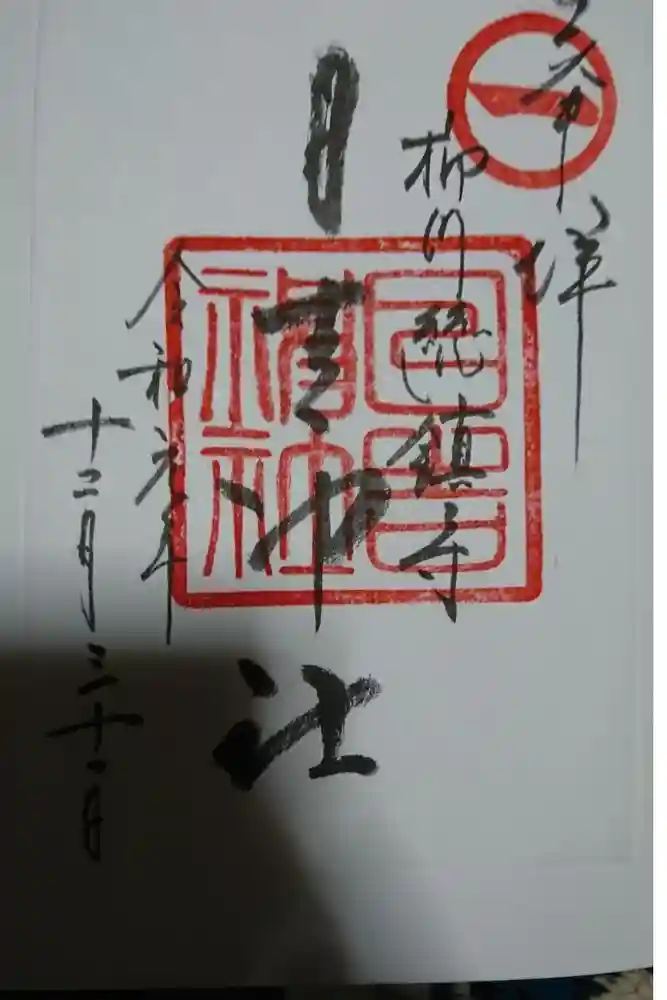 奉拝
柳川総鎮守
日吉神社
日吉
神社
令和元年
十二月三十一日